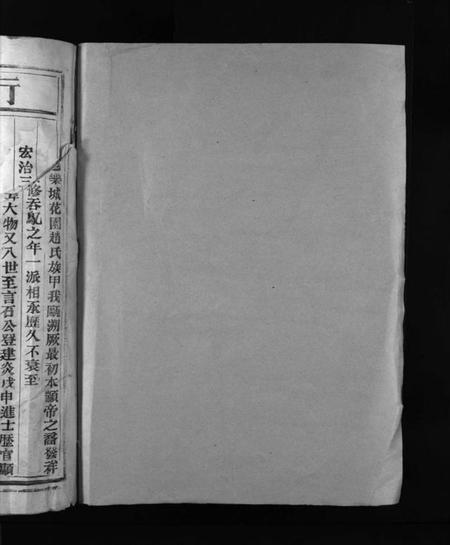 樂城花園趙氏族甲我甌溯厥最初本顓帝之裔發祥
修吞馭之年一派相承歷久不衰至
宏治三
大物又八世至言石公登建炎戊申進士歷官顯
行